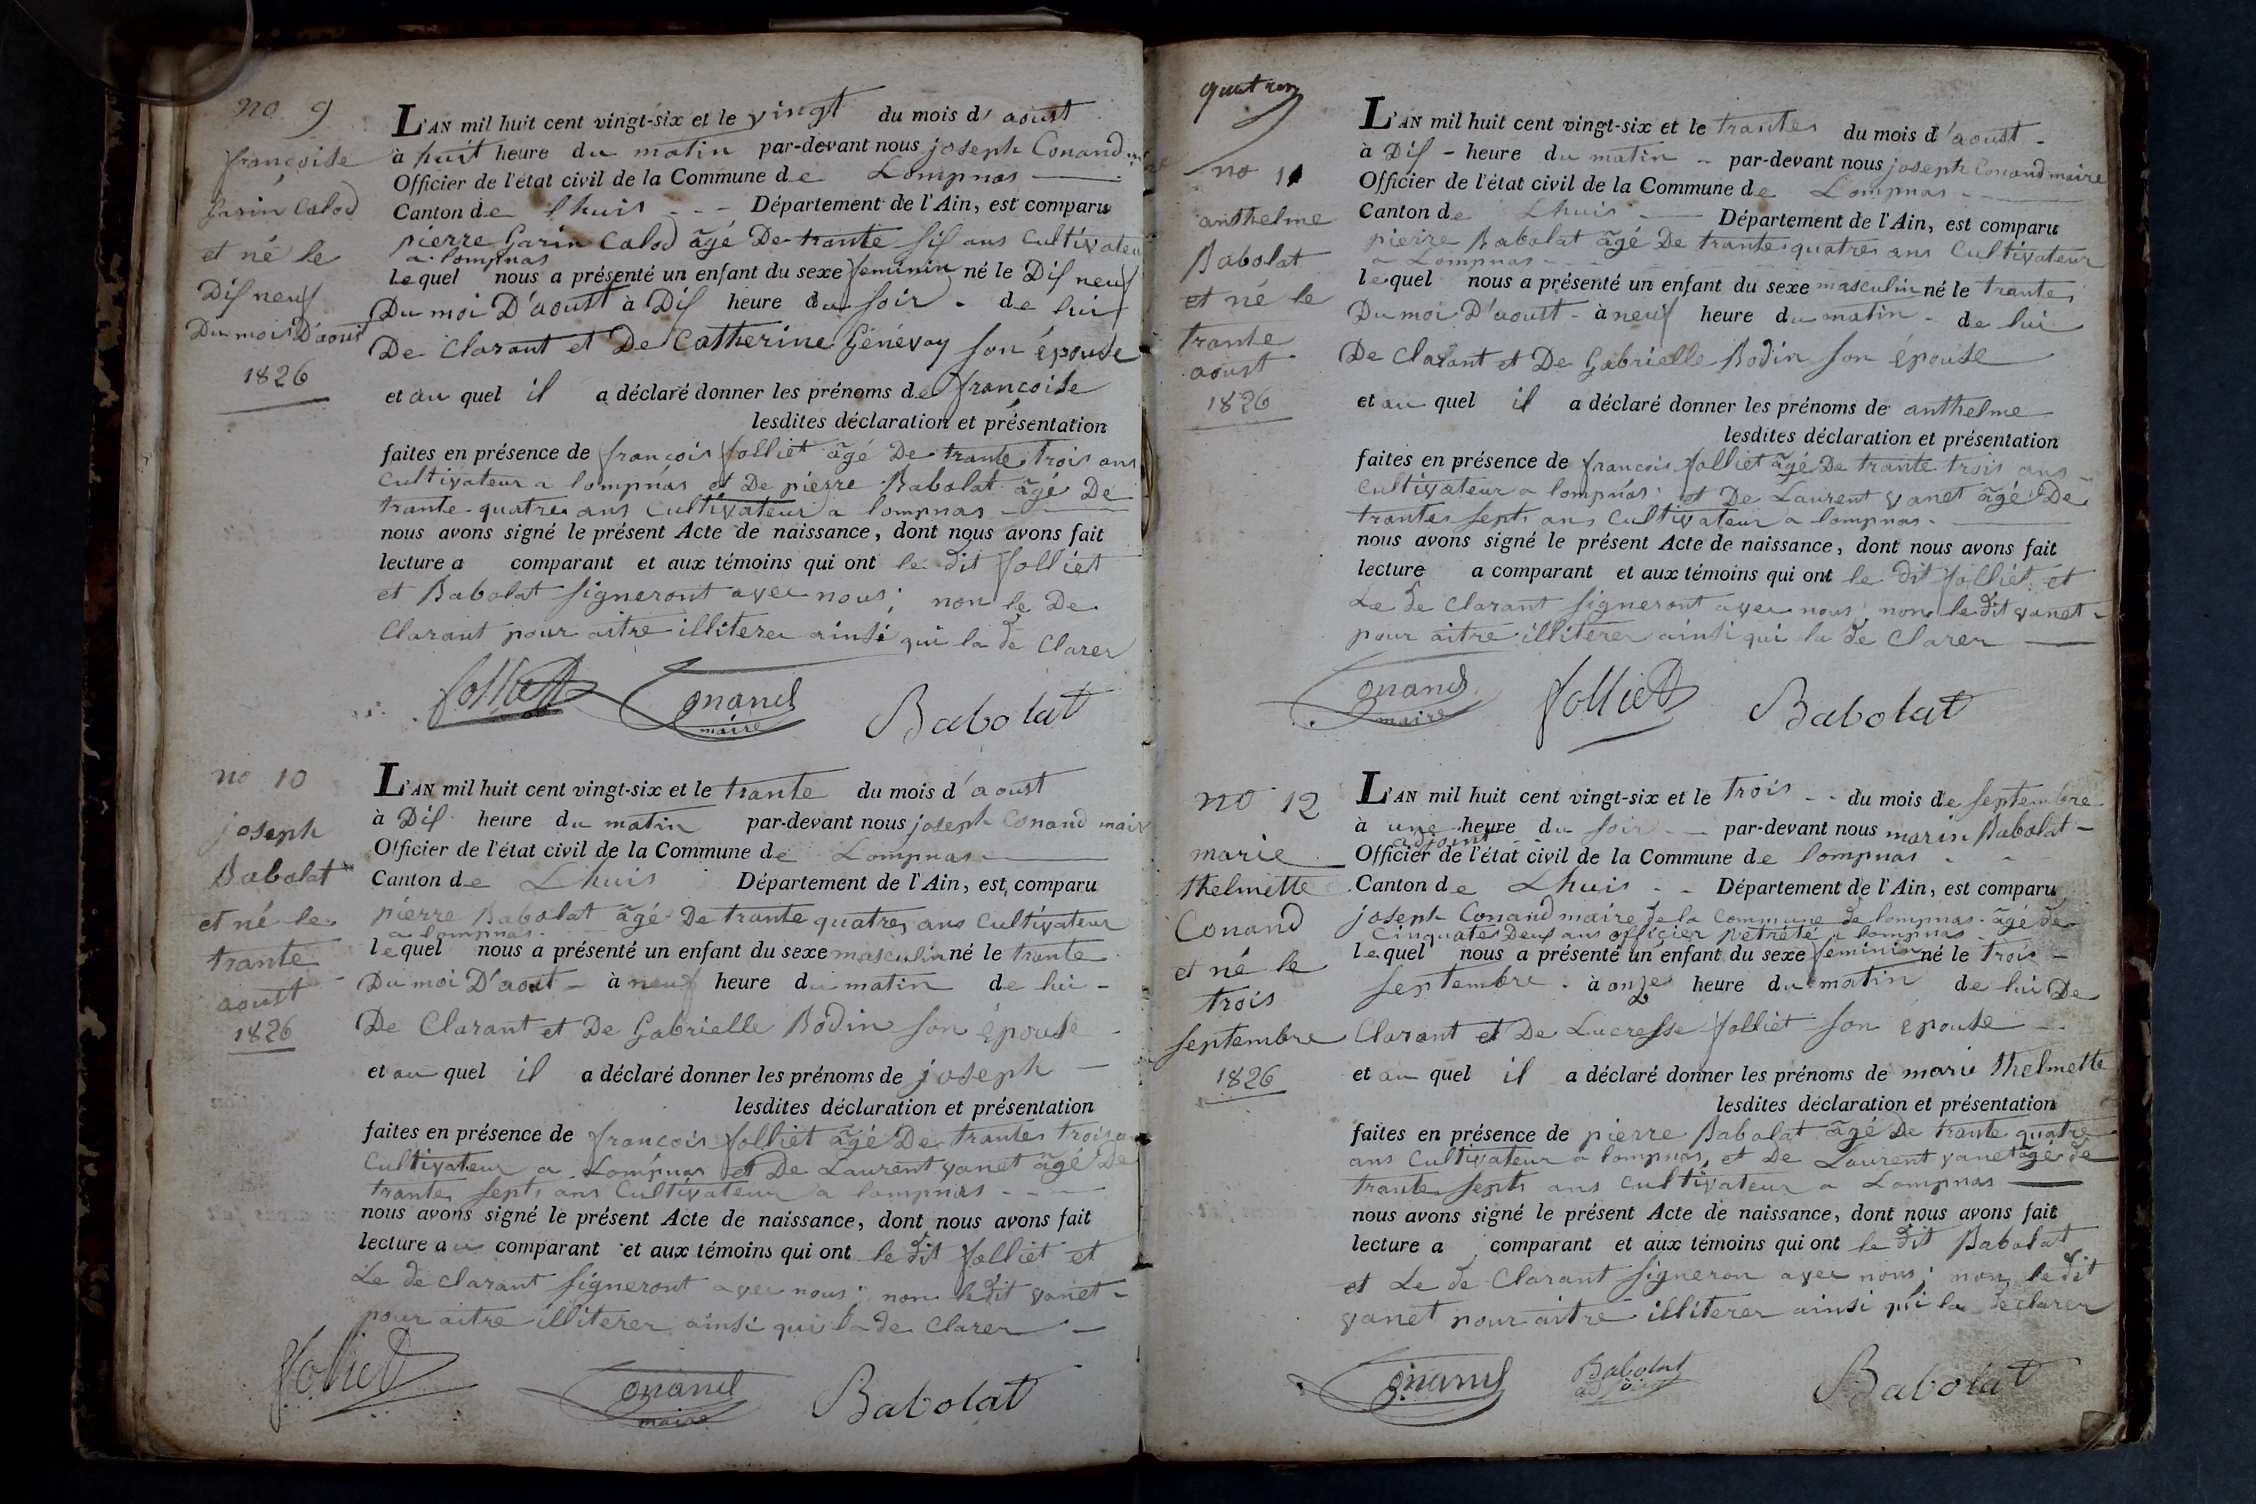 no 9
françoise
garin Calod
et né le
Dis neuf
Du mois D'aoust
1826
L'AN mil huit cent vingt-six et le vingt du mois d' aoust
à huit heure du matin par-devant nous joseph Conand
Officier de l'état civil de la Commune de Lompnas
Canton de Lhuis Département de l'Ain, est comparu
pierre Garin Calod âgé De trante six ans Cultivateur
a lompnas
lequel nous a présenté un enfant du sexe feminin né le Dis neuf
Du moi D'aoust à Dis heure du soir de lui
De Clarant et De Catherine Génévay son épouse
et au quel il a déclaré donner les prénoms de françoise
lesdites déclaration et présentation
faites en présence de françois folliet âgé De trante trois ans
Cultivateur a lompnas et De pierre Babolat âgé De
trante quatre ans Cultivateur a lompnas
nous avons signé le présent Acte de naissance, dont nous avons fait
lecture a comparant et aux témoins qui ont le dit folliet
et Babolat signeront avec nous; non le De
Clarant pour aitre illiterer ainsi qui la de Clarer
folliet Conand maire Babolat
no 10
joseph
Babolat
et né le
trante
aoust
1826
L'AN mil huit cent vingt-six et le trante du mois d'aoust
à Dis heure du matin par-devant nous joseph Conand maire
Officier de l'état civil de la Commune de Lompnas
Canton de Lhuis Département de l'Ain, est comparu
pierre Babolat âgé De trante quatre ans Cultivateur
a lompnas
lequel nous a présenté un enfant du sexe masculin né le trante
Du moi D'aoust à neuf heure du matin de lui
De Clarant et De Gabrielle Bodin son épouse
et au quel il a déclaré donner les prénoms de joseph
lesdites déclaration et présentation
faites en présence de françois folliet âgé De trantes trois
Cultivateur a Lompnas et De Laurent vanet âgé De
trantes septs ans Cultivateur a lompnas
nous avons signé le présent Acte de naissance, dont nous avons fait
lecture au comparant et aux témoins qui ont le dit folliet et
Le de clarant signeront avec nous; non le dit vanet
pour aitre illiterer ainsi qui la de Clarer
folliet Conand maire Babolat
no 11
anthelme
Babolat
et né le
trante
aoust
1826
L'AN mil huit cent vingt-six et le trantes du mois d'aoust
à Dis heure du matin par-devant nous joseph Conand maire
Officier de l'état civil de la Commune de Lompnas
Canton de Lhuis Département de l'Ain, est comparu
pierre Babolat âgé De trantes quatres ans Cultivateur
a Lompnas
lequel nous a présenté un enfant du sexe masculin né le trantes
Du moi D'aoust à neuf heure du matin de lui
De Clarant et De Gabrielle Bodin son épouse
et au quel il a déclaré donner les prénoms de anthelme
lesdites déclaration et présentation
faites en présence de françois folliet âgé De trante trois ans
Cultivateur a lompnas et De Laurent vanet âgé De
trantes septs ans Cultivateur a lompnas
nous avons signé le présent Acte de naissance, dont nous avons fait
lecture a comparant et aux témoins qui ont le dit folliet et
Le de clarant signeront avec nous non le dit vanet
pour aitre illiterer ainsi qui la de Clarer
Conand maire folliet Babolat
no 12
marie
thelmette
Conand
et né le
trois
septembre
1826
L'AN mil huit cent vingt-six et le trois du mois de septembre
à une heure du soir par-devant nous marin Babolat
adjoint
Officier de l'état civil de la Commune de lompnas
Canton de Lhuis Département de l'Ain, est comparu
joseph Conand maire de la Commune de lompnas âgé de
Cinquates Deux ans officier retrété a lompnas
lequel nous a présenté un enfant du sexe feminin né le trois
septembre à onze heure du matin de lui De
Clarant et De Lucresse folliet son épouse
et au quel il a déclaré donner les prénoms de marie thelmette
lesdites déclaration et présentation
faites en présence de pierre Babolat âgé De trante quatre
ans Cultivateur a lompnas, et De Laurent vanet âgé de
trantes septs ans Cultivateur a Lompnas
nous avons signé le présent Acte de naissance, dont nous avons fait
lecture a comparant et aux témoins qui ont le dit Babolat
et Le de Clarant signeron avec nous; non le dit
vanet pour aitre illiterer ainsi qui la declarer
Conand Babolat adjoint Babolat